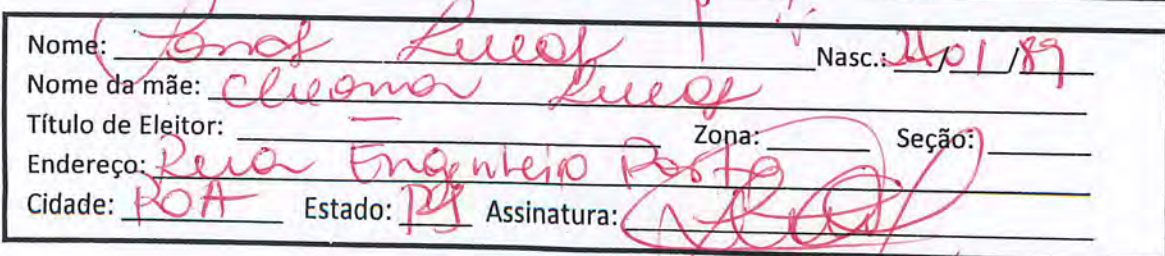 Nome: Jonas Lucas Nasc.: 21/01/89
Nome da mãe: Lucas
Título de Eleitor: — Zona: Seção:
Endereço: Rua Engenheiro
Cidade: POA Estado: RS Assinatura: